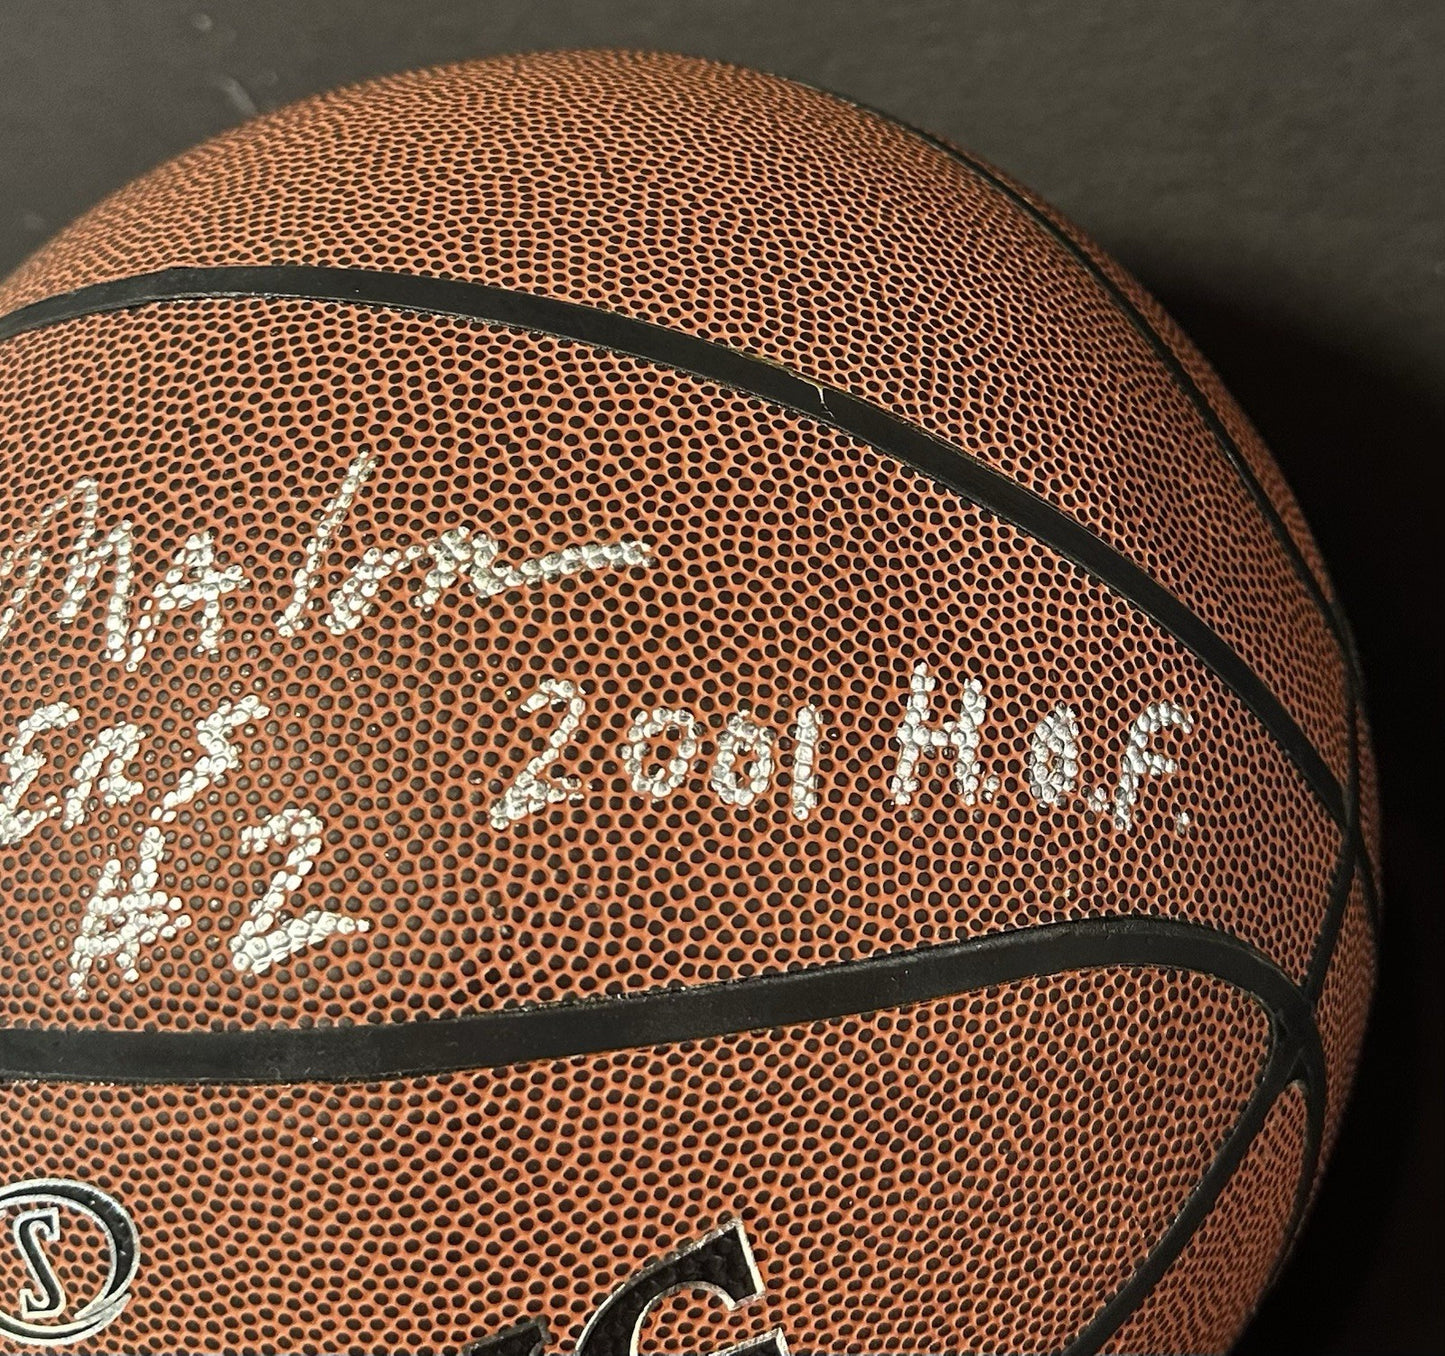 Malone
ERS 2001 H.O.F.
#2
S
G